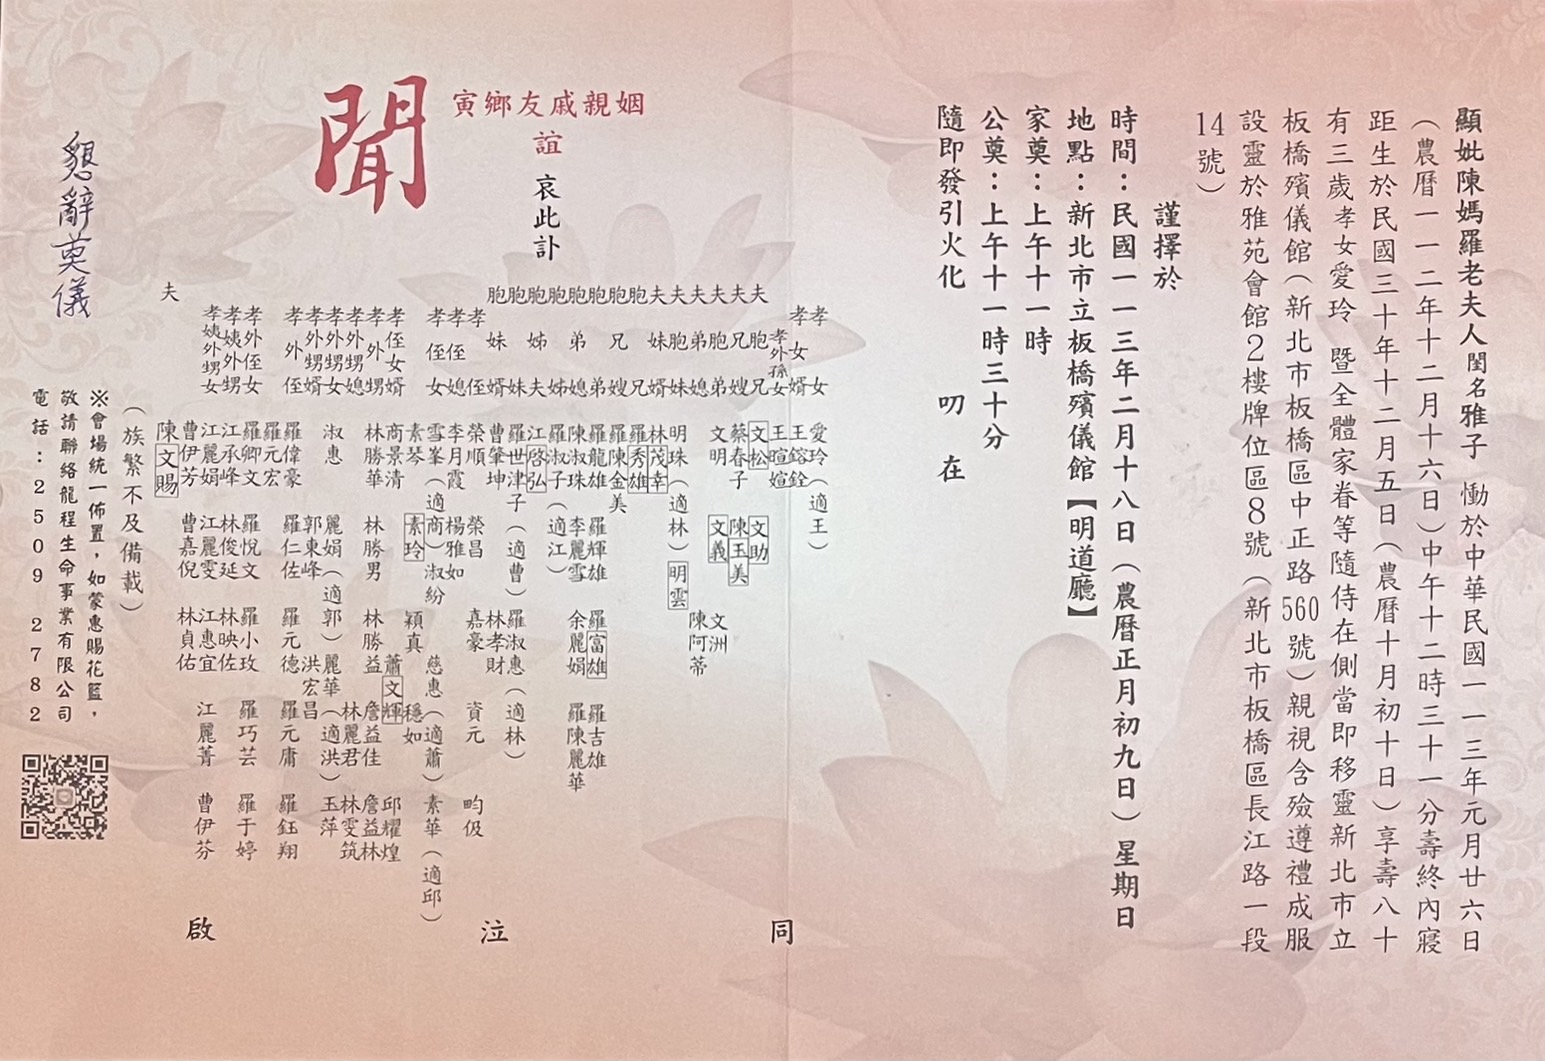 顯妣陳媽羅老夫人閨名雅子 慟於中華民國一一三年元月廿六日
(農曆一一二年十二月十六日)中午十二時三十一分壽終內寢
距生於民國三十年十二月五日(農曆十月初十日)享壽八十
有三歲孝女愛玲 暨全體家眷等隨侍在側當即移靈新北市立
板橋殯儀館(新北市板橋區中正路560號)親視含殮遵禮成服
設靈於雅苑會館2樓牌位區8號(新北市板橋區長江路一段
14號)
謹擇於
時間:民國一一三年二月十八日(農曆正月初九日)星期日
地點:新北市立板橋殯儀館【明道廳】
家奠:上午十一時
公奠:上午十一時三十分
隨即發引火化 叨在
姻親戚友鄉寅
誼
哀此訃
聞
孝女 愛玲(適王)
孝女婿 王鎔銓
孝外孫 王暄媗
夫胞兄 文松 文助
夫胞兄嫂 蔡春子 陳玉美
夫胞弟 文明 文義 文洲
夫胞弟媳 陳阿蒂
夫胞妹 明珠(適林) 明雲
夫妹婿 林茂幸
胞兄 羅秀雄
胞兄嫂 羅陳金美
胞弟 羅龍雄 羅輝雄 羅富雄 羅吉雄
胞弟媳 陳淑珠 李麗雪 余麗娟 羅陳麗華
胞姊 羅淑子(適江)
胞姊夫 江啓弘
胞妹 羅世津子(適曹) 羅淑惠(適林)
胞妹婿 曹肇坤 林孝財
孝侄 榮順 榮昌 嘉豪 資元 畇伋
孝侄媳 李月霞 楊雅如
孝侄女 雪峯(適商) 淑紛 慈惠(適蕭) 素華(適邱)
素琴 素玲 穎真 穩如
孝侄女婿 商景清 蕭文輝 邱耀煌
孝外甥 林勝華 林勝男 林勝益 詹益佳 詹益林
孝外甥媳 林麗君 林雯筑
孝外甥女 淑惠 麗娟(適郭) 麗華(適洪) 玉萍
孝外甥婿 郭東峰 洪宏昌
孝外侄 羅偉豪 羅仁佐 羅元德 羅元庸 羅鈺翔
羅元宏
孝外侄女 羅卿文 羅悅文 羅小玫 羅巧芸 羅于婷
孝姨外甥 江承峰 林俊延 林映佐
孝姨外甥女 江麗娟 江麗雯 江惠宜 江麗菁 曹伊芬
曹伊芳 曹嘉倪 林貞佑
夫 陳文賜
同 泣 啟
(族繁不及備載)
※會場統一佈置,如蒙惠賜花籃,
敬請聯絡龍程生命事業有限公司
電話:2509 2782
懇辭奠儀